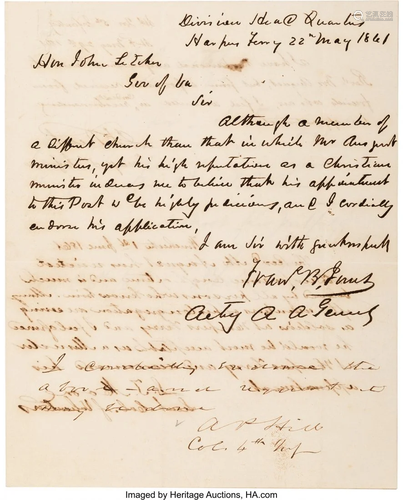 Division Head Quarters
Harpers Ferry 22nd May 1861
Hon John Letcher
Gov of Va
Sir
Although a member of
a diffrent church than that in which Mr
ministers, yet his high reputation as a Christian
minister induces me to believe that his appointment
to this Post wd be highly judicious, and I cordially
endorse his application,
I am Sir with great respect
Acting A A Genl
I cordially the
above
A P Hill
Col. 4th
Imaged by Heritage Auctions, HA.com